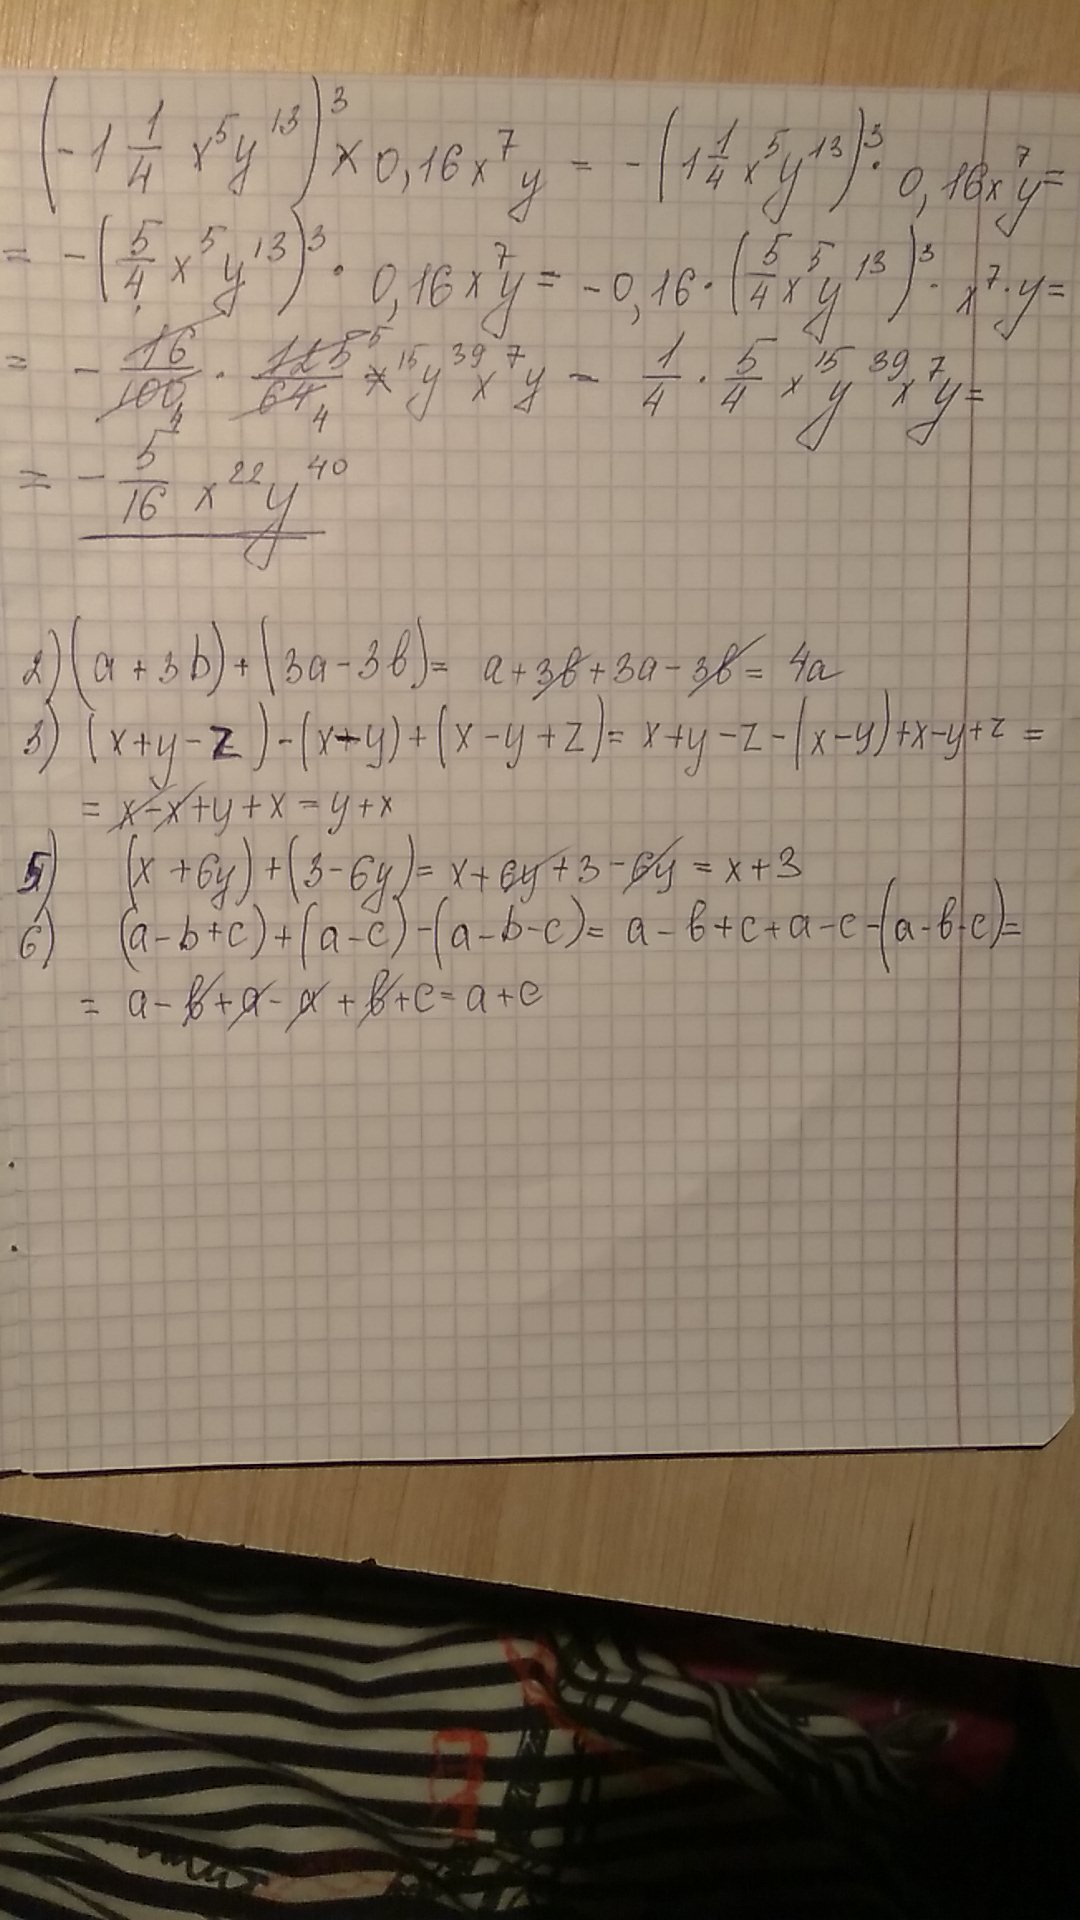 (-1 1/4 x^5 y^13)^3 × 0,16x^7 y = -(1 1/4 x^5 y^13)^3 · 0,16x^7 y =
= -(5/4 x^5 y^13)^3 · 0,16x^7 y = -0,16 · (5/4 x^5 y^13)^3 · x^7 · y =
= - 16/100 4 · 125 5/64 4 x^15 y^39 x^7 y - 1/4 · 5/4 x^15 y^39 x^7 y =
= - 5/16 x^22 y^40
2) (a + 3b) + (3a - 3в) = a + 3в + 3a - 3в = 4a
3) (x + y - z) - (x - y) + (x - y + z) = x + y - z - (x - y) + x - y + z =
= x - x + y + x = y + x
5) (x + 6y) + (3 - 6y) = x + 6y + 3 - 6y = x + 3
6) (a - b + c) + (a - c) - (a - b - c) = a - в + c + a - c - (a - в - c) =
= a - в + a - a + в + c = a + c